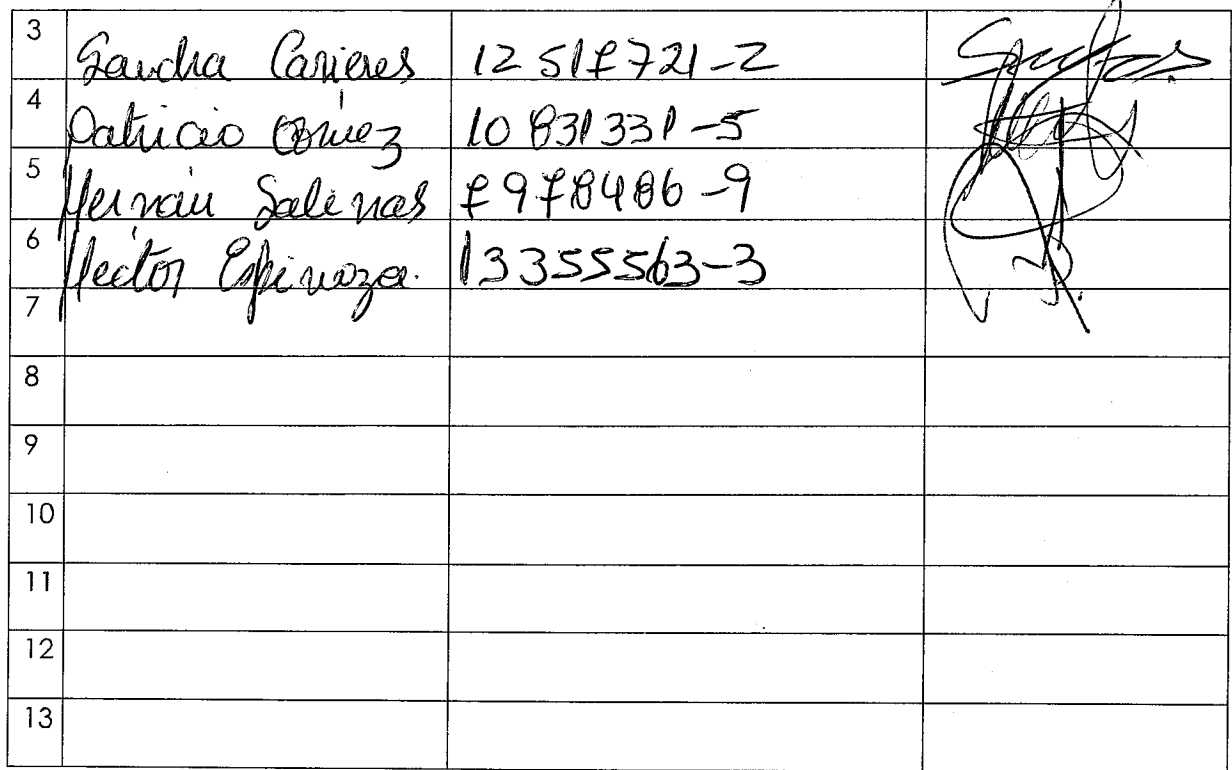 3 Sandra Carieres 12 517721-2
4 Patricio Gómez 10 831331-5
5 Hernán Salinas 7978486-9
6 Hector Espinoza. 13355563-3
7
8
9
10
11
12
13